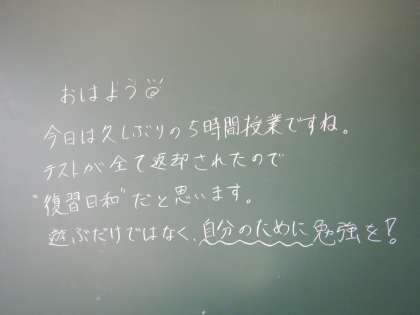 おはよう
今日は久しぶりの5時間授業ですね。
テストが全て返却されたので
"復習日和"だと思います。
遊ぶだけではなく、自分のために勉強を!